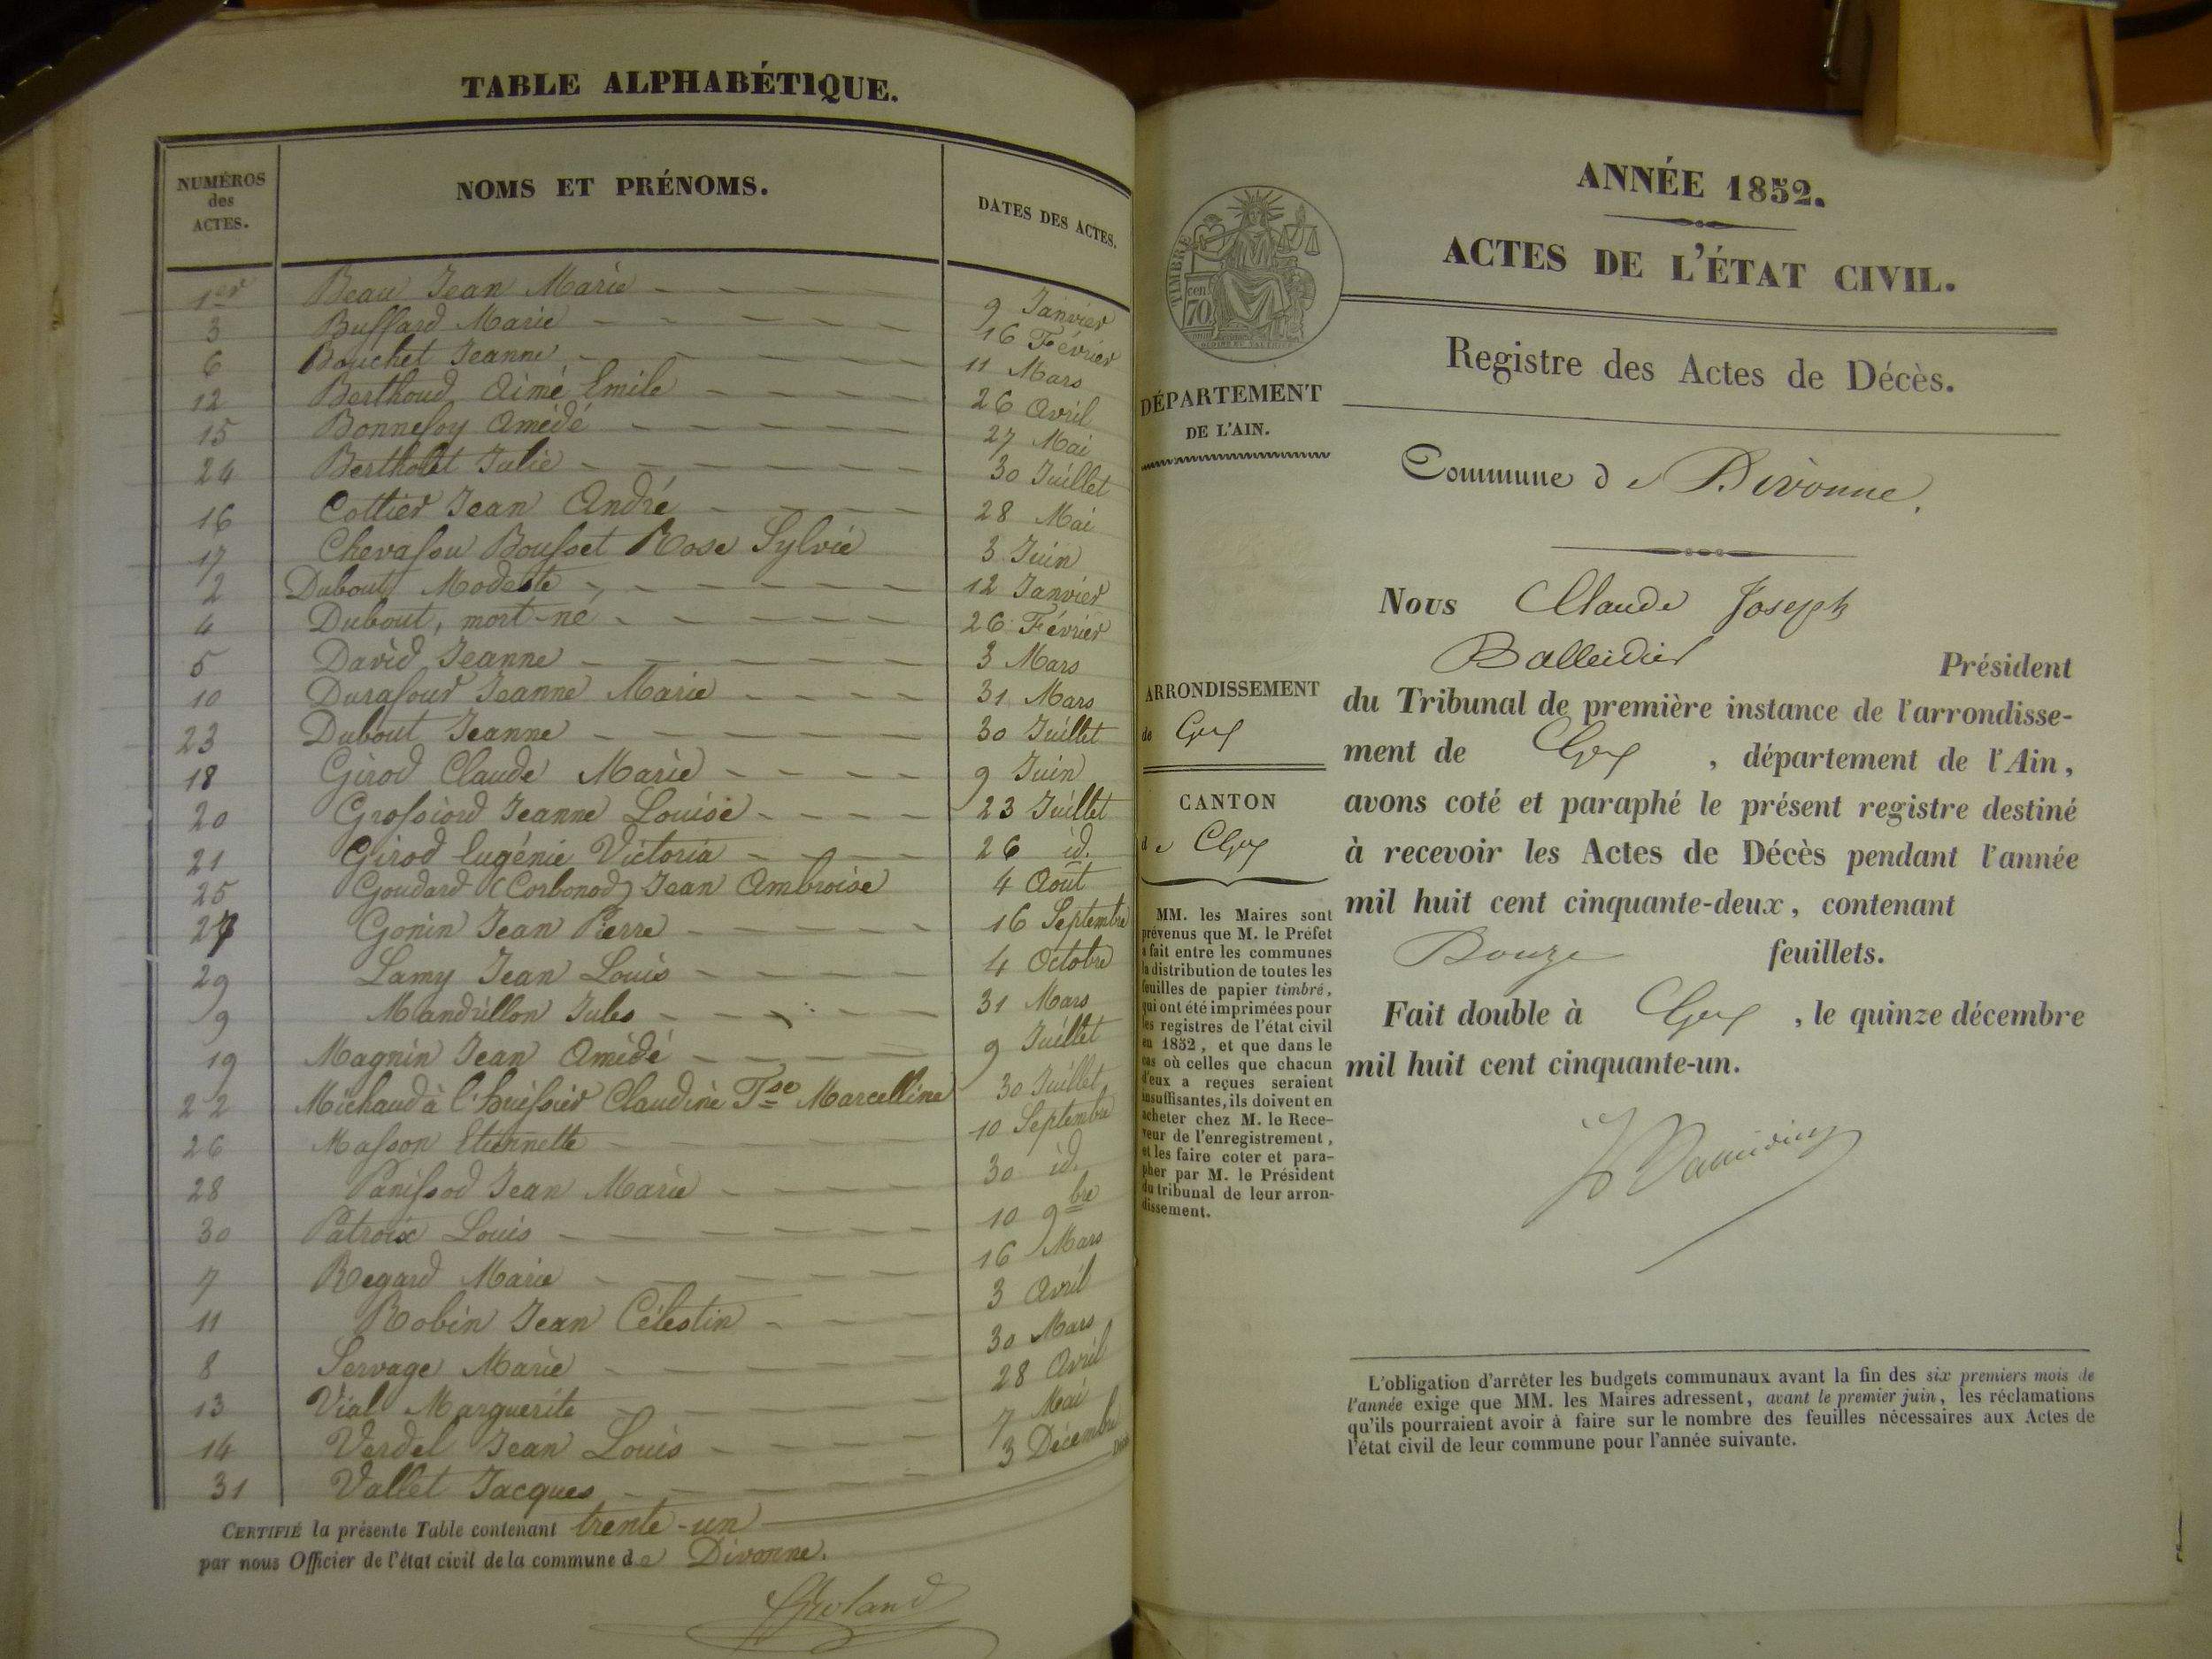 TABLE ALPHABÉTIQUE.
NUMÉROS des ACTES. NOMS ET PRÉNOMS. DATES DES ACTES.
1er Beau Jean Marie 9 Janvier
3 Buffard Marie 16 Février
6 Bouchet Jeanne 11 Mars
12 Berthoud Aimé Emile 26 Avril
15 Bonnefoy Amédé 27 Mai
24 Bertholet Julie 30 Juillet
16 Cottier Jean André 28 Mai
17 Chevassu Bousset Rose Sylvie 3 Juin
2 Dubout Modeste 12 Janvier
4 Dubout, mort-né 26 Février
5 David Jeanne 3 Mars
10 Durafour Jeanne Marie 31 Mars
23 Dubout Jeanne 30 Juillet
18 Girod Claude Marie 9 Juin
20 Grossiord Jeanne Louise 23 Juillet
21 Girod Eugénie Victoria 26 id.
25 Goudard (Corbonod) Jean Ambroise 4 Août
27 Gonin Jean Pierre 16 Septembre
29 Lamy Jean Louis 4 Octobre
9 Mandrillon Jules 31 Mars
19 Magnin Jean Amédé 9 Juillet
22 Michaud à l'huissier Claudine Tse Marcelline 30 Juillet
26 Masson Etiennette 10 Septembre
28 Panissod Jean Marie 30 id.
30 Patroix Louis 10 9bre
7 Regard Marie 16 Mars
11 Robin Jean Célestin 3 Avril
8 Servage Marie 30 Mars
13 Vial Marguerite 28 Avril
14 Verdel Jean Louis 7 Mai
31 Vallet Jacques 3 Décembre
CERTIFIÉ la présente Table contenant trente-un
par nous Officier de l'état civil de la commune de Divonne.
ANNÉE 1852.
ACTES DE L'ÉTAT CIVIL.
TIMBRE
cen.
70
Registre des Actes de Décès.
DÉPARTEMENT
DE L'AIN.
Commune de Divonne.
ARRONDISSEMENT
de Gex
CANTON
de Gex
MM. les Maires sont
prévenus que M. le Préfet
a fait entre les communes
la distribution de toutes les
feuilles de papier timbré,
qui ont été imprimées pour
les registres de l'état civil
en 1852, et que dans le
cas où celles que chacun
d'eux a reçues seraient
insuffisantes, ils doivent en
acheter chez M. le Rece-
veur de l'enregistrement,
et les faire coter et para-
pher par M. le Président
du tribunal de leur arron-
dissement.
Nous Claude Joseph
Balleidier Président
du Tribunal de première instance de l'arrondisse-
ment de Gex, département de l'Ain,
avons coté et paraphé le présent registre destiné
à recevoir les Actes de Décès pendant l'année
mil huit cent cinquante-deux, contenant
Douze feuillets.
Fait double à Gex, le quinze décembre
mil huit cent cinquante-un.
L'obligation d'arrêter les budgets communaux avant la fin des six premiers mois de
l'année exige que MM. les Maires adressent, avant le premier juin, les réclamations
qu'ils pourraient avoir à faire sur le nombre des feuilles nécessaires aux Actes de
l'état civil de leur commune pour l'année suivante.